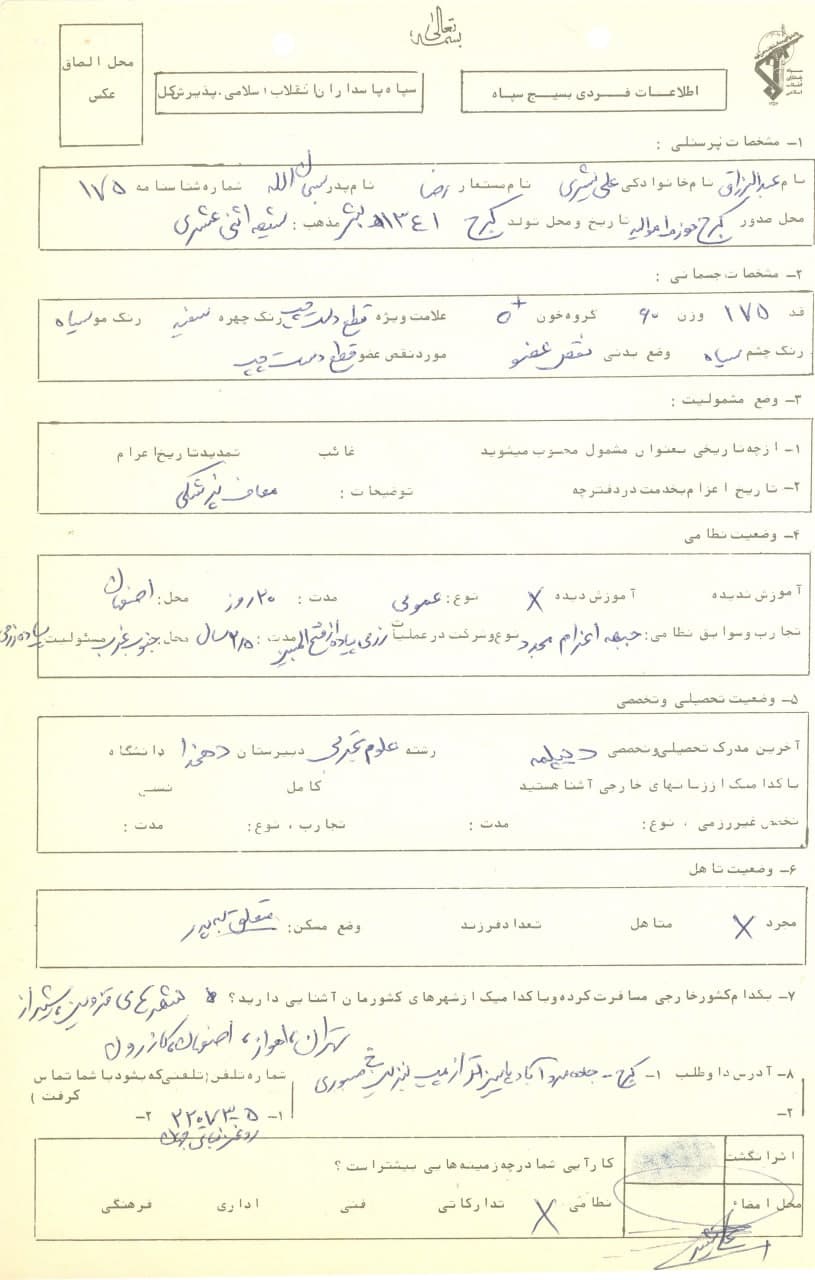 بسمه تعالی
محل الصاق
عکس
سپاه پاسداران انقلاب اسلامی، پذیرش کل
اطلاعات فردی بسیج سپاه
۱ـ مشخصات پرسنلی :
نام عبدالرزاق نام خانوادگی علی بشری نام مستعار رضا نام پدر سیف الله شماره شناسنامه ۱۷۵
محل صدور کرج تاریخ و محل تولد کرج ۱۳۴۱ مذهب : شیعه اثنی عشری
۲ـ مشخصات جسمانی :
قد ۱۷۵ وزن ۶۰ گروه خون O+ علامت ویژه قطع دست چپ رنگ چهره سفید رنگ مو سیاه
رنگ چشم سیاه وضع بدنی نقص عضو مورد نقص عضو قطع دست چپ
۳ـ وضع مشمولیت :
۱ـ از چه تاریخی بعنوان مشمول محسوب میشوید غائب تمدید تاریخ اعزام
۲ـ تاریخ اعزام بخدمت در دفترچه توضیحات : معاف پزشکی
۴ـ وضعیت نظامی
آموزش ندیده آموزش دیده X نوع : عمومی مدت : ۲۰ روز محل : اصفهان
تجارب و سوابق نظامی : جبهه اعزام مجدد نوع و شرکت در عملیات رزمی پیاده از فتح المبین مدت : ۲/۵ سال محل : جنوب غرب مسئولیت پیاده رزمی
۵ـ وضعیت تحصیلی و تخصصی
آخرین مدرک تحصیلی و تخصصی دیپلمه رشته علوم تجربی دبیرستان دهخدا دانشگاه
با کدامیک از زبانهای خارجی آشنا هستید کامل نسبی
تخصص غیر رزمی ، نوع : مدت : تجارب ، نوع : مدت :
۶ـ وضعیت تاهل
مجرد X متاهل تعداد فرزند وضع مسکن : متعلق به پدر
۷ـ بکدام کشور خارجی مسافرت کرده و با کدامیک از شهرهای کشورمان آشنایی دارید ؟ شهرهای قزوین، شیراز
تهران، اهواز، اصفهان، کازرون
۸ـ آدرس داوطلب ۱ـ کرج - جاده مردآباد پایین تر از پمپ بنزین
شماره تلفن (تلفنی که بشود با شما تماس گرفت )
۲ـ
۱ـ ۲۲۰۷۳-۵ ۲ـ
روغن نباتی جهان
اثر انگشت
محل امضاء
کارآیی شما در چه زمینه هایی بیشتر است ؟
نظامی X تدارکاتی فنی اداری فرهنگی